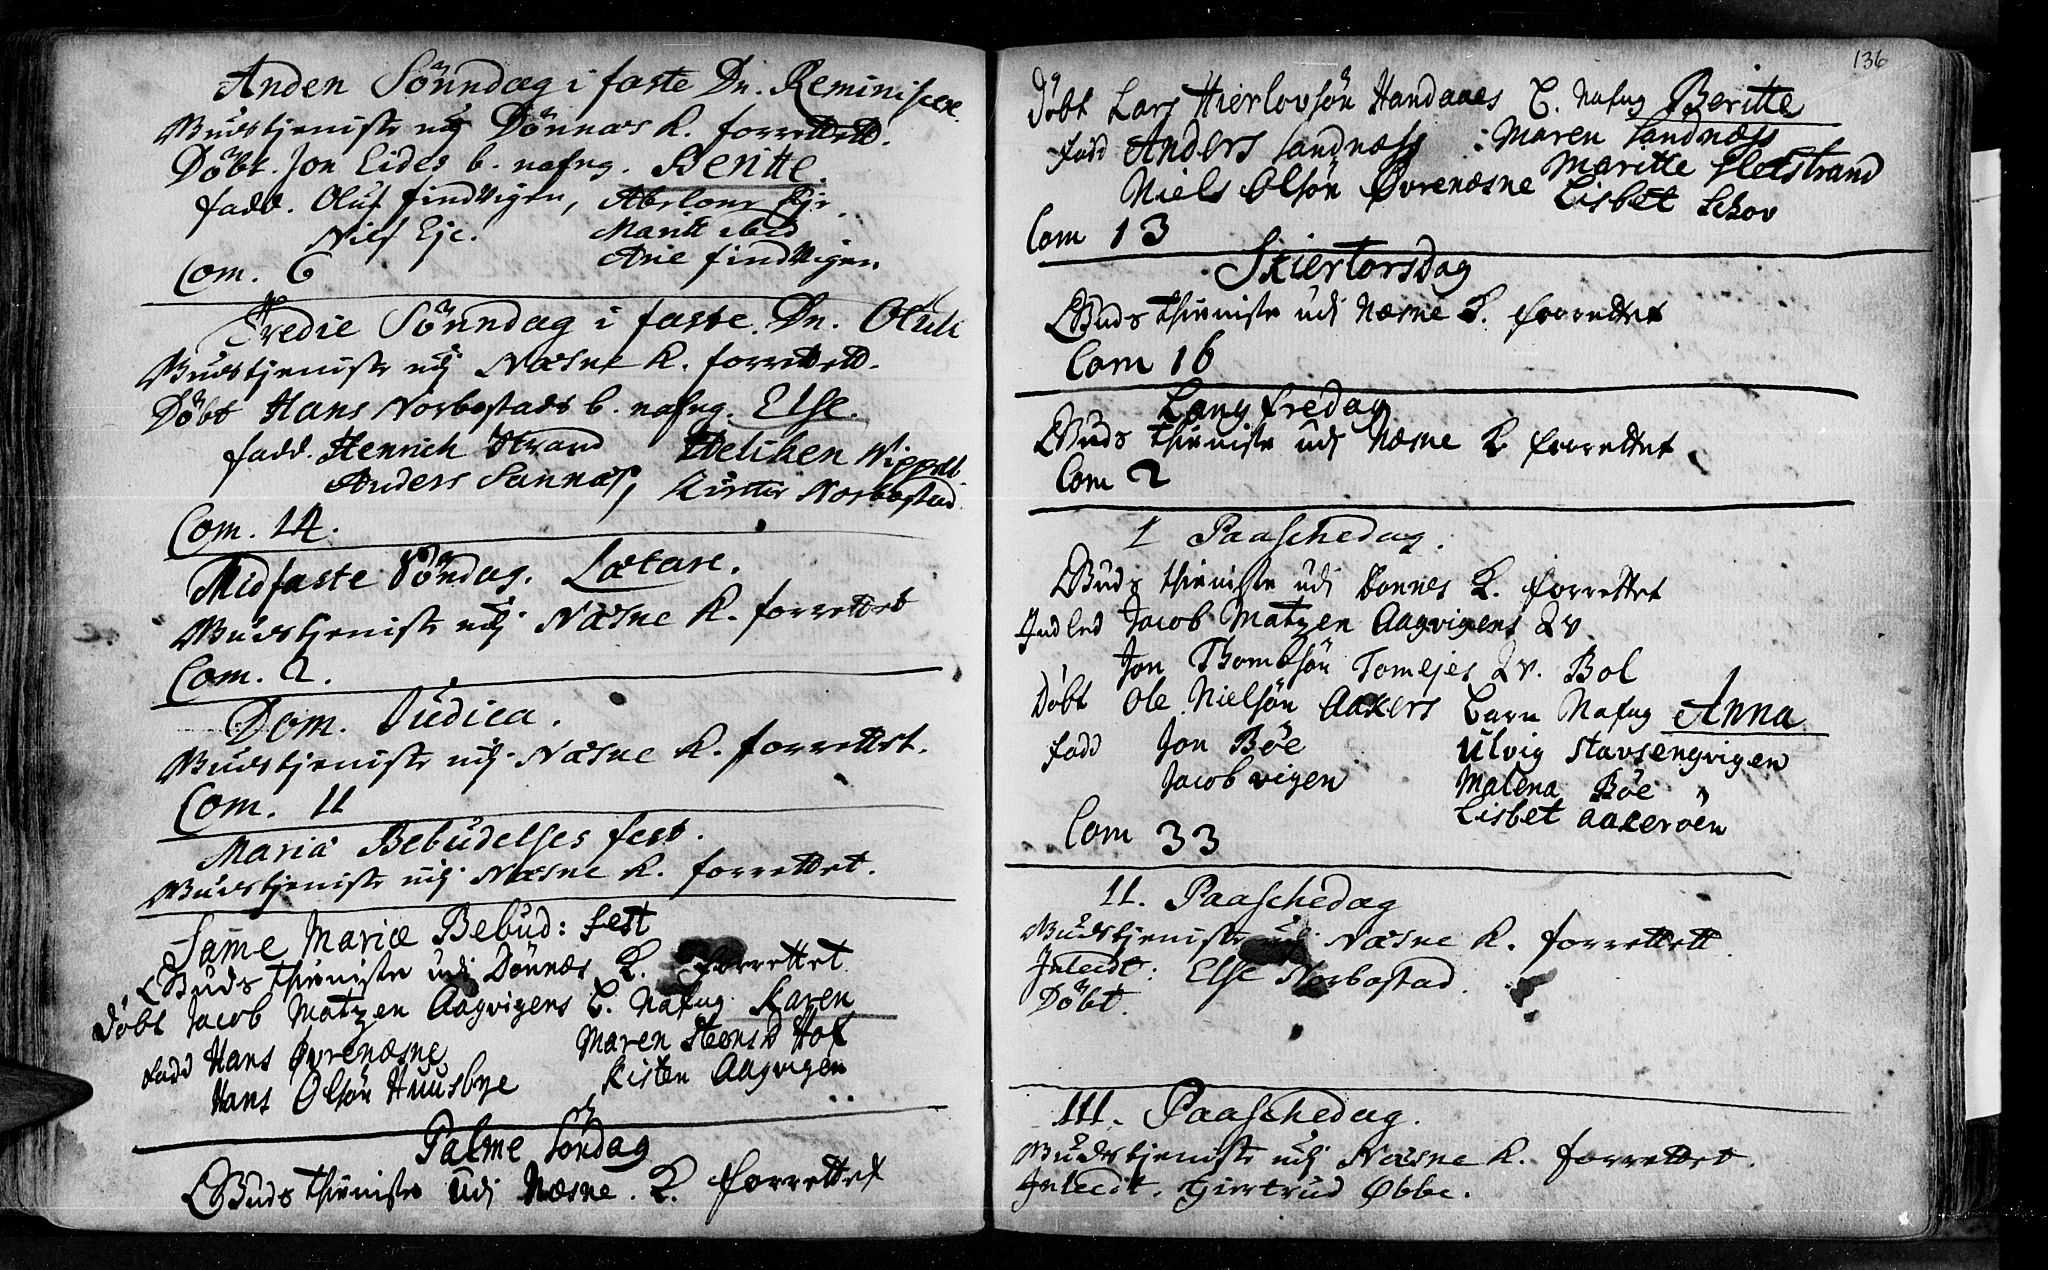 Anden Sönndag i faste Dn. Reminiscere.
Gudstjeniste udj Dönnæs K. forrettett.
Döbt. Jon Eides b. nafng. Beritte.
fadd. Oluf findvigen, Abelone Eje.
Niels Eje. Maritt ibid
Com. 6 Ane findvigen.
Tredie Sönndag i faste. Dn. Oculi
Gudstjeniste udj Næsne K. forrettett.
Döbt Hans Norbostads b. nafng. Else.
fadd. Henrich Strand
Anders Sannæs, Norbostad.
Com. 14.
Midfaste Söndag. Lætare.
Gudstjeniste udj Næsne K. forrettet
Com. 2.
Dom. Judica.
Gudstjeniste udj Næsne K. forrettet.
Com. 11
Mariæ Bebudelses fest.
Gudstjeniste udj Næsne K. forrettet.
Same Mariæ Bebud: fest
Guds thieniste udi Dönnæs K. forrettet
Döbt Jacob Matzen Aagvigens B. Nafng. Karen
fadd Hans Øvrenæsne Maren Hof
Hans Olsön Huusbye Kisten Aagvigen
Palme Söndag
Guds thieniste udi Næsne. K. forrettet
136
Döbt Lars Hierlovsön Handaaes B. Nafng Beritte
fadd Anders Sandnæss : Maren Sandnæss
Niels Olsön Øvrenæsne Maritte
Lisbet Schov
Com 13
Skiertorsdag
Guds thieniste udi Næsne K. forrettet
Com 16
Lang fredag
Guds thieniste udi Næsne K forrettet
Com 2
I Paaschedag.
Guds thieniste udi Donnes K. forrettet
Indled Jacob Matzen Aagvigens Qv
Jon Thomesön Tomejes Qv. Bol
Döbt Ole Nielsön Aakers Barn Nafng Anna
fadd Jon Böe Ulvig Stavsengvigen
Jacob vigen Malena Böe
Lisbet aakeröen
Com 33
II. Paaschedag
Gudstjeniste udj Næsne K. forrettett.
Inleedt: Else Norbostad.
Döbt.
III. Paaschedag.
Gudstjeniste udj Næsne K. forrettet.
Inleedt. Giertrud Øbbe.